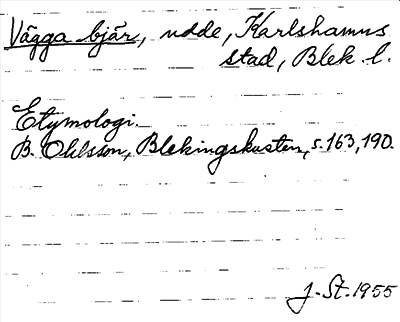 Vägga bjär, udde, Karlshamns
stad, Blek l.
Etymologi.
B. Ohlsson, Blekingskusten, s. 163, 190.
J. St. 1955